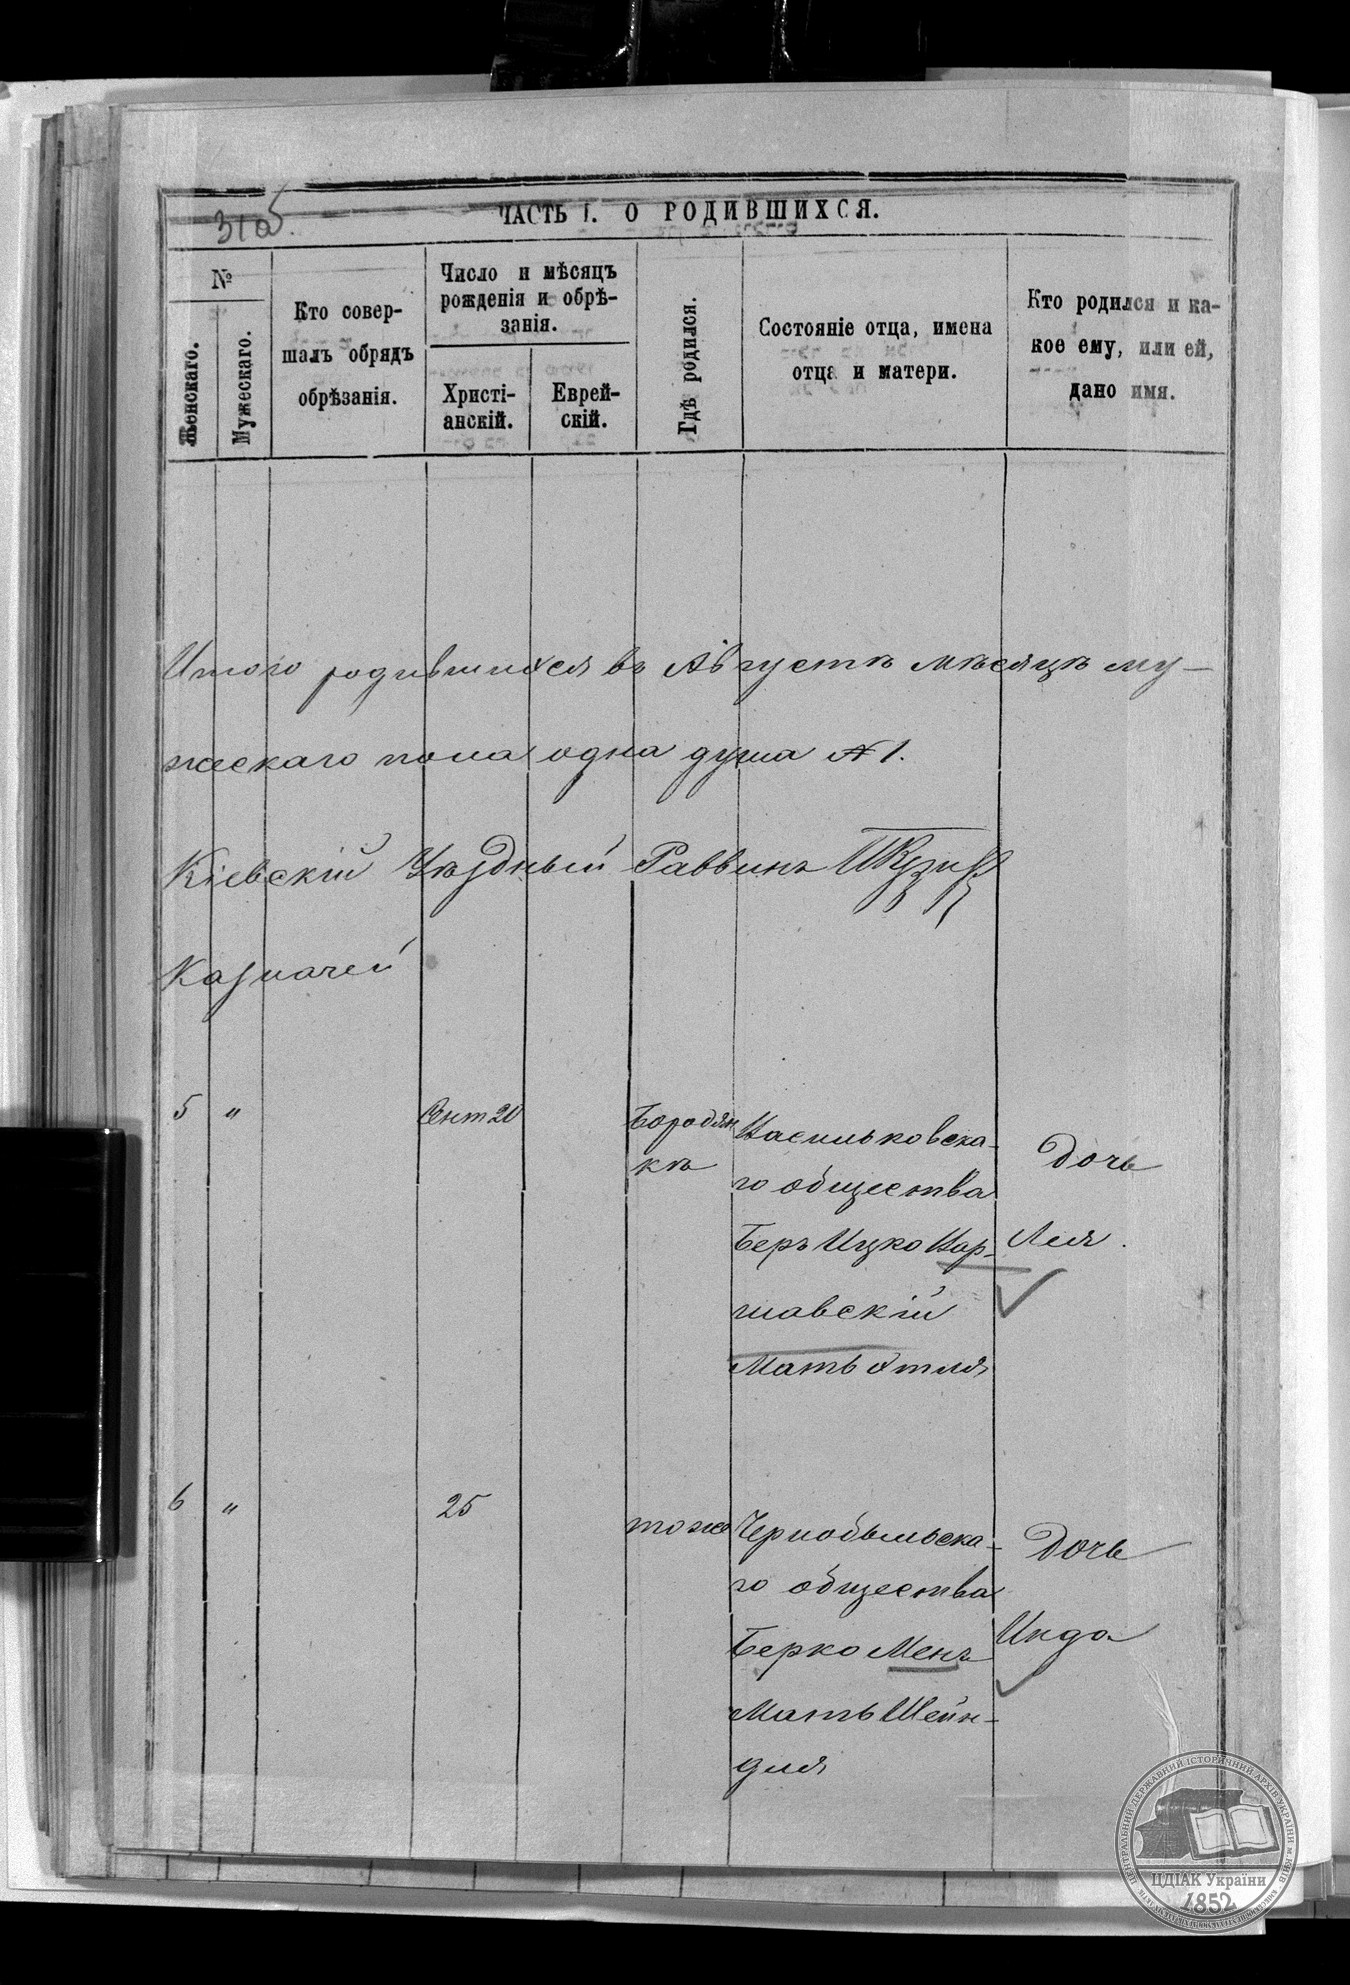 ЧАСТЬ I. О РОДИВШИХСЯ.
№
Женскаго.
Мужескаго.
Кто совер-
шалъ обрядъ
обрѣзанія.
Число и мѣсяцъ
рожденія и обрѣ-
занія.
Христі-
анскій.
Еврей-
скій.
Гдѣ родился.
Состояніе отца, имена
отца и матери.
Кто родился и ка-
кое ему, или ей,
дано имя.
Итого родившихся въ Августѣ мѣсяцѣ му-
жескаго пола одна душа № 1.
Кіевскій Уѣздный Раввинъ
Казначей
5 " Сент 20
Бородян
кѣ
Васильковска-
го общества
Беръ Ицко Вар-
шавскій
Мать Этля
Дочь
Лея.
6 " 25
тоже
Чернобыльска-
го общества
Берко Менъ
Мать Шейн-
для
Дочь
Инда
ЦЕНТРАЛЬНИЙ ДЕРЖАВНИЙ ІСТОРИЧНИЙ АРХІВ УКРАЇНИ, м. КИЇВ
ЦДІАК України
1852